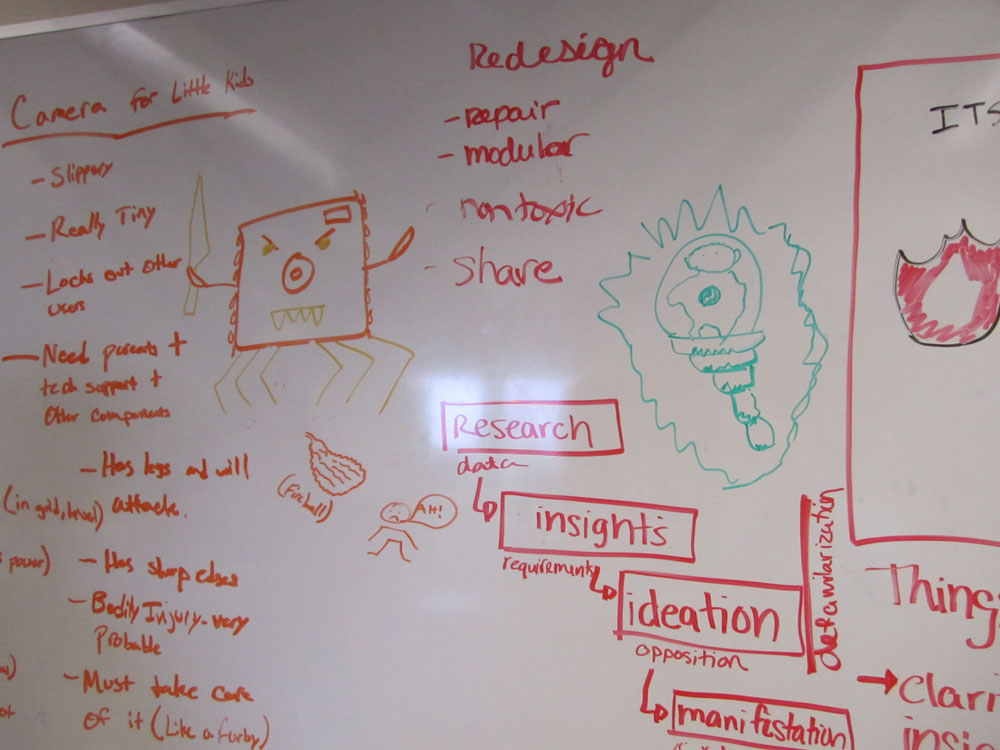 Camera for Little Kids
- Slippery
- Really Tiny
- Locks out other
users
- Need parents +
tech support +
Other components
- Has legs and will
attack.
(in grid, level)
power)
- Has sharp edges
- Bodily Injury - very
Probable
- Must take care
of it (Like a furby)
(fireball)
AH!
Redesign
- repair
- modular
- nontoxic
- share
Research
data
insights
requirements
ideation
opposition
manifistation
defamilarization
ITS
Things
→ Clari
insig